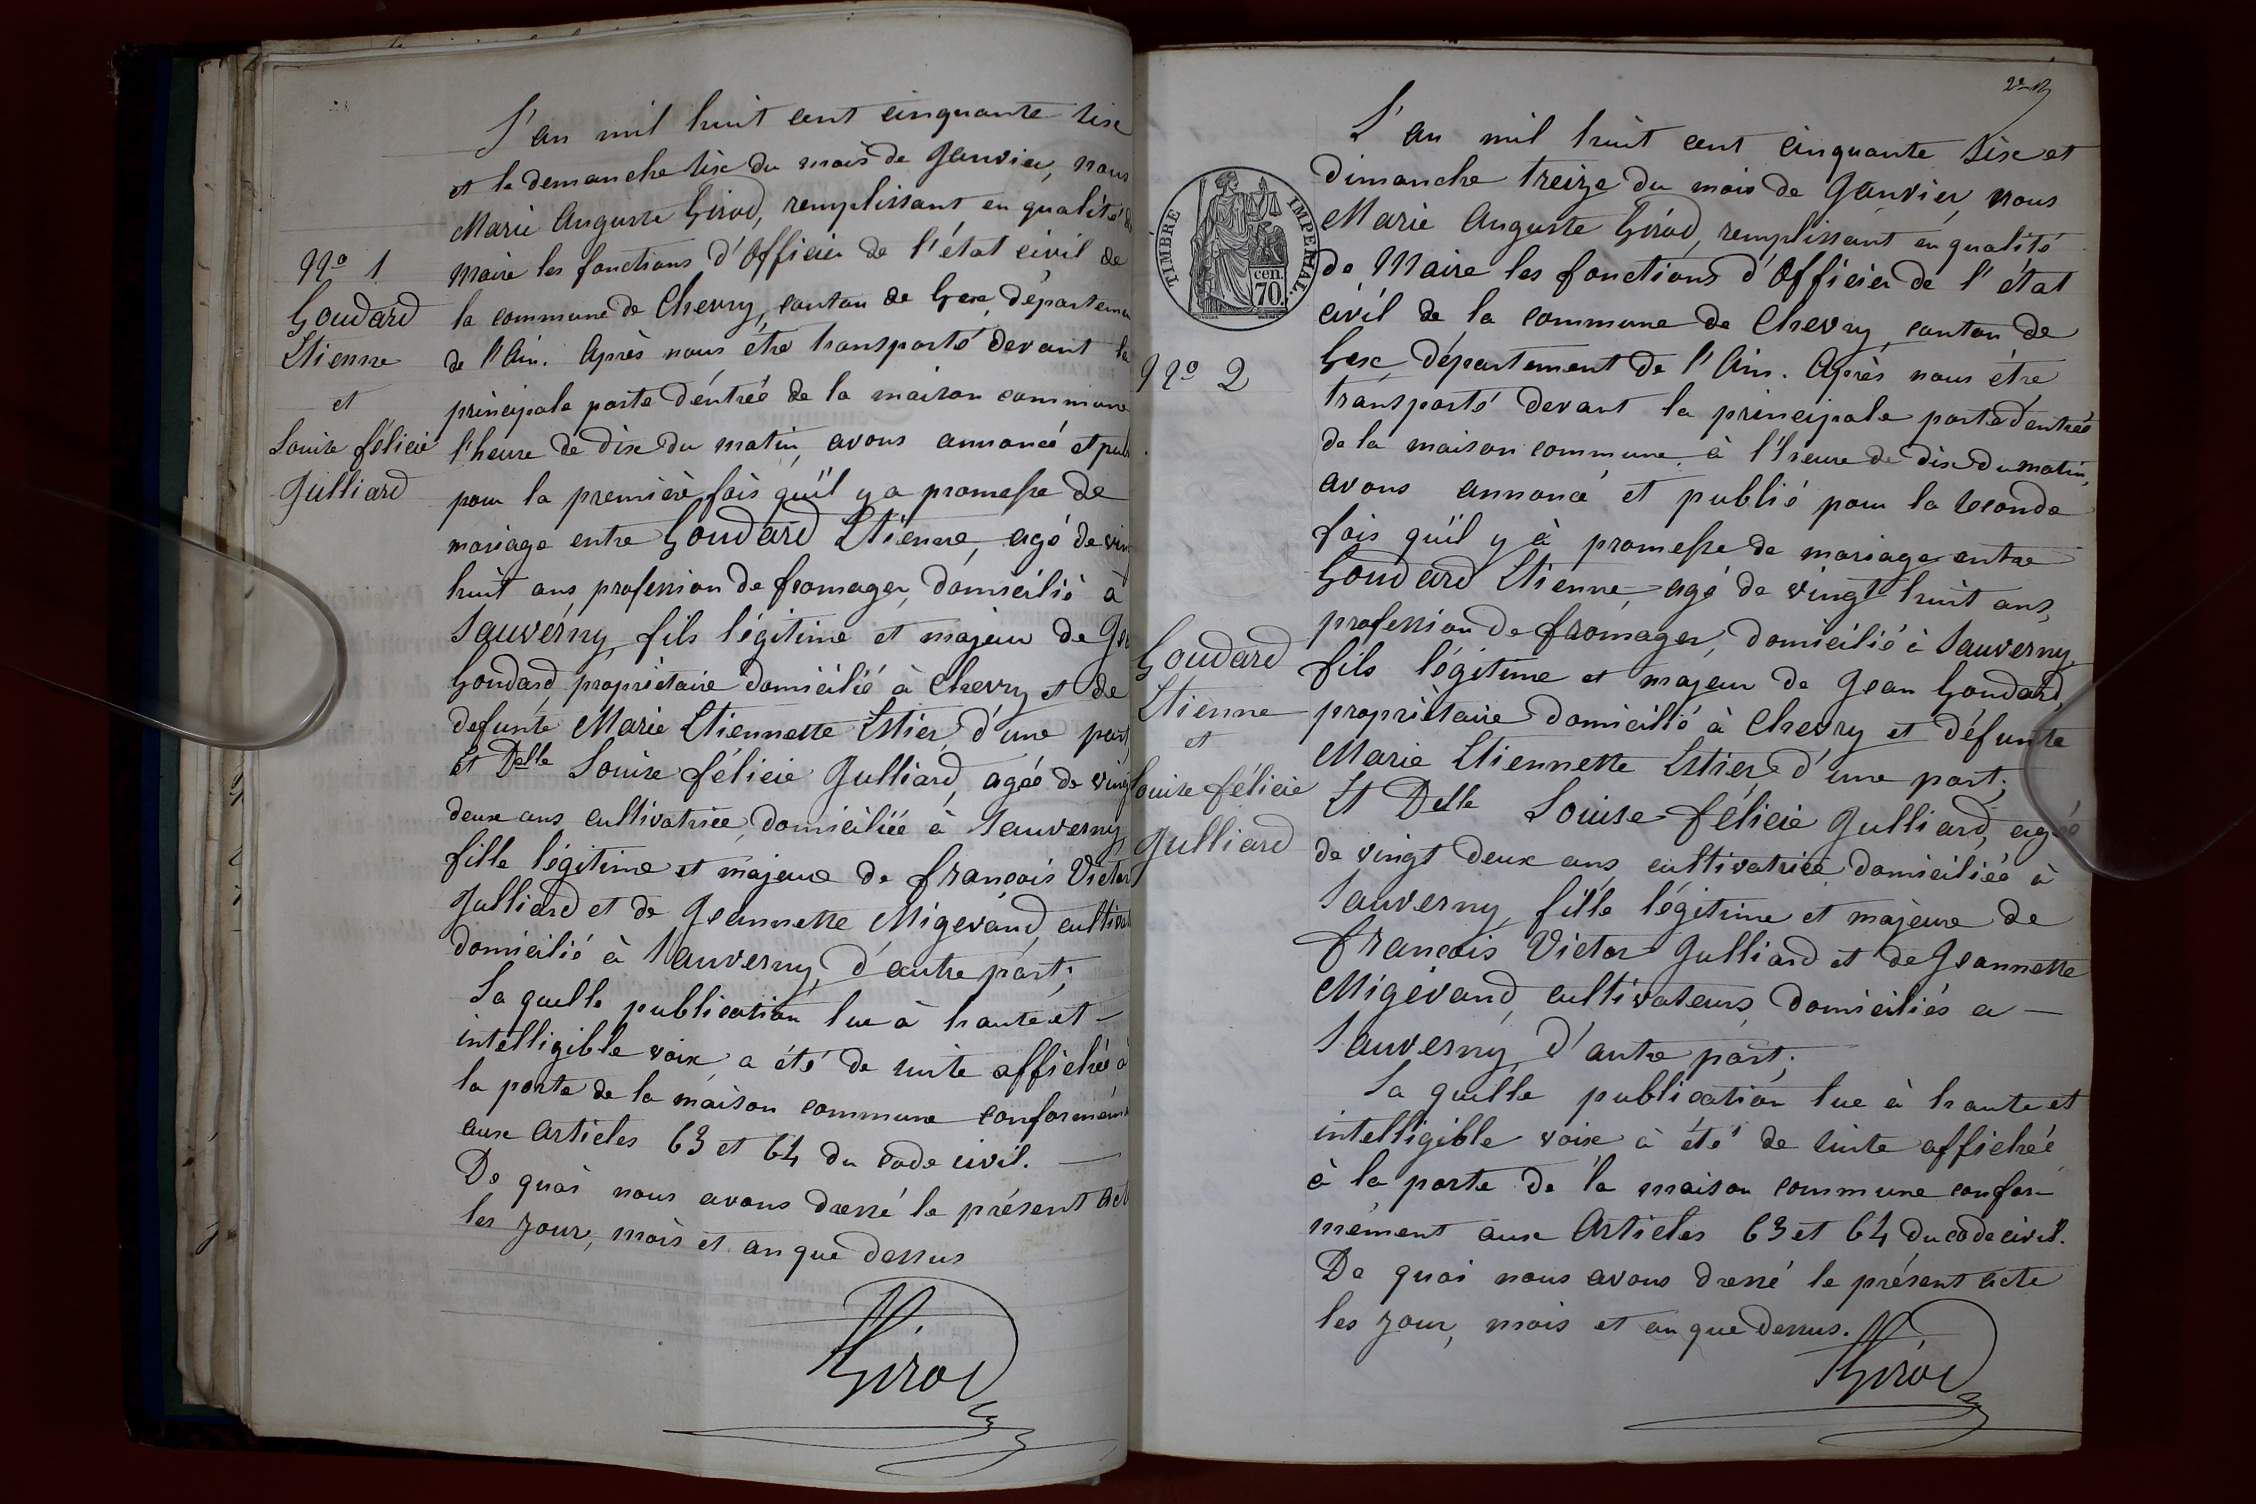 Nº 1
Goudard
Etienne
et
Louise félicie
Julliard
L'an mil huit cent cinquante six
et le demanche six du mois de Janvier, nous
Marie Auguste Girod, remplissant en qualité de
maire les fonctions d'Officier de l'état civil de
la commune de Chevry, canton de Gex, départemen
de l'Ain. Après nous être transporté devant la
principale porte d'entrée de la maison commune
l'heure de dix du matin, avons annoncé et pub
pour la première fois qu'il y a promesse de
mariage entre Goudard Etienne, agé de vin
huit ans profession de fromager, domicilié à
Sauverny, fils légitime et majeur de Je
Goudard, propriétaire domicilié à Chevry et de
defunte Marie Etiennette Estier, d'une part
Et Delle Louise félicie Julliard, agée de ving
deux ans cultivatrice, domiciliée à Sauverny
fille légitime et majeure de françois Victor
Julliard et de Jeannette Migevand, cultivat
domicilié à Sauverny, d'autre part;
La quelle publication lue à haute et
intelligible voix, a été de suite affichée à
la porte de la maison commune conformém
aux Articles 63 et 64 du code civil.
De quoi nous avons dressé le présent act
les jour, mois et an que dessus
Girod
TIMBRE IMPERIAL.
cen.
70.
Nº 2
Goudard
Etienne
et
Louise félicie
Julliard
L'an mil huit cent cinquante six et
dimanche treize du mois de Janvier, nous
Marie Auguste Girod, remplissant en qualité
de Maire les fonctions d'Officier de l'état
civil de la commune de Chevry, canton de
Gex, département de l'Ain. Après nous être
transporté devant la principale porte d'entrée
de la maison commune, à l'heure de dix du matin,
avons annoncé et publié pour la seconde
fois qu'il y à promesse de mariage entre
Goudard Etienne, agé de vingt huit ans,
profession de fromager, domicilié à Sauverny
fils légitime et majeur de Jean Goudard,
propriètaire domicilié à Chevry et défunte
Marie Etiennette Estier, d'une part;
Et Delle Louise félicie Julliard, agée
de vingt deux ans, cultivatrice domiciliée à
Sauverny, fille légitime et majeure de
françois Victor Julliard et de Jeannette
Migevand, cultivateurs, domiciliés a
Sauverny, d'autre part;
La quelle publication lue à haute et
intelligible voix à été de suite affichée
à la porte de la maison commune confor-
mément aux Articles 63 et 64 du code civil.
De quoi nous avons dressé le présent acte
les jour, mois et an que dessus.
Girod